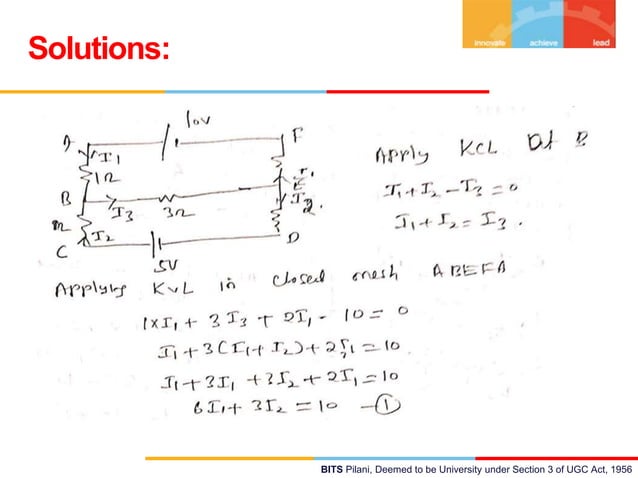 Solutions:
innovate achieve lead
10V
A F
I1
1Ω
B E
I3 3Ω
I2
C D
5V
Apply KCL at B
I1 + I2 - I3 = 0
I1 + I2 = I3.
Applying KVL in closed mesh ABEFA
1×I1 + 3I3 + 2I1 - 10 = 0
I1 + 3(I1 + I2) + 2I1 = 10
I1 + 3I1 + 3I2 + 2I1 = 10
6I1 + 3I2 = 10 - ①
BITS Pilani, Deemed to be University under Section 3 of UGC Act, 1956